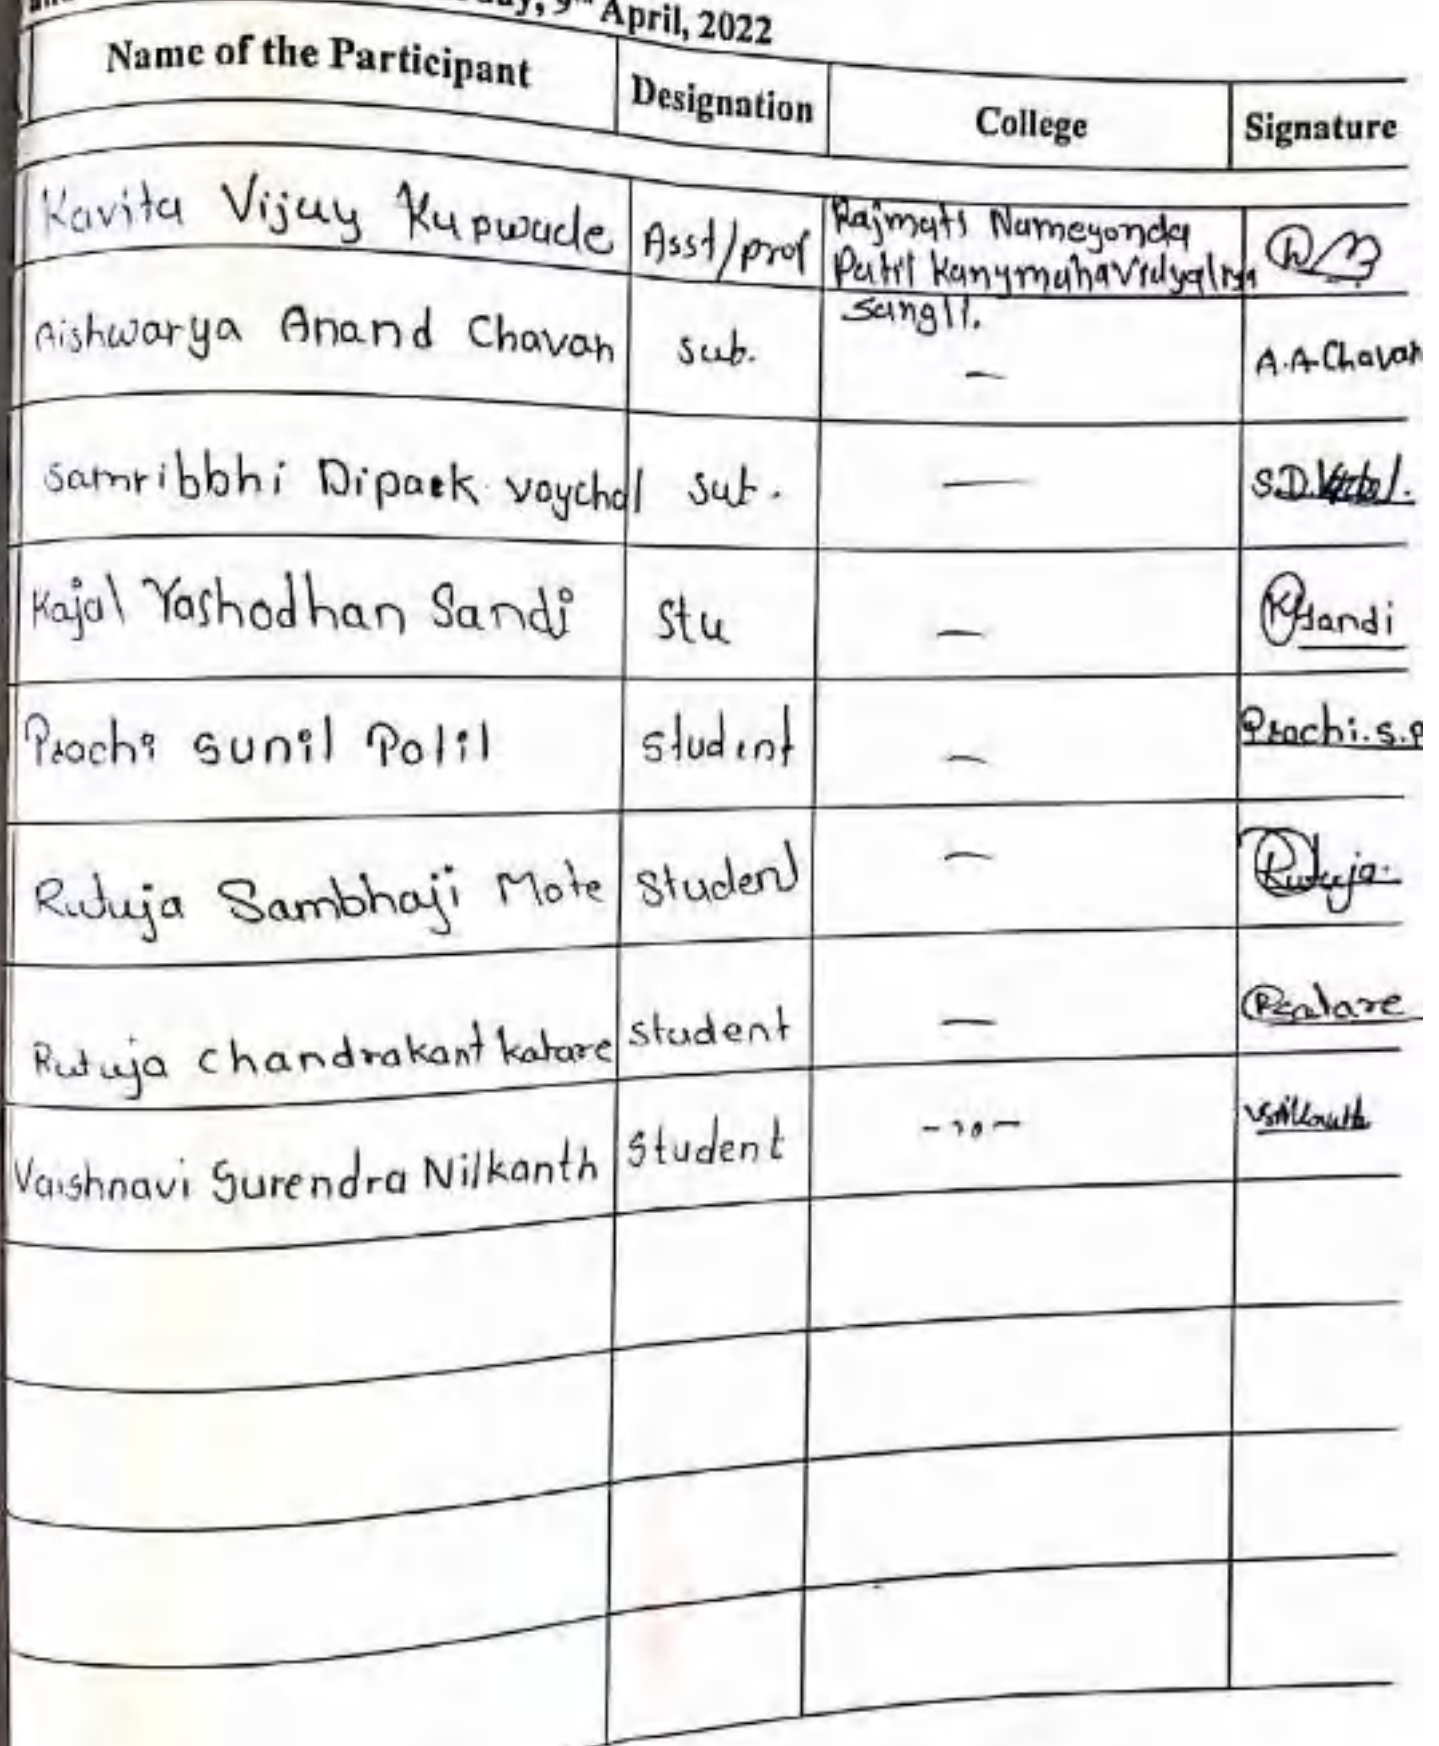 April, 2022
Name of the Participant Designation College Signature
Kavita Vijay Kupwade Asst/prof Rajmati Nemeyonda
Patil Kanymahavidyalya
sangli.
Aishwarya Anand Chavan sub. — A.A.Chavan
Samribbhi Dipaek voychal sut. — S.D.
Kajal Yashodhan Sandi stu — Ksandi
Prachi Sunil Patil student — Prachi.s.P
Rutuja Sambhaji Mote Student — Rutuja.
Rutuja Chandrakant katare student — Rcatare
Vaishnavi Surendra Nilkanth Student -"- VSNilkanth